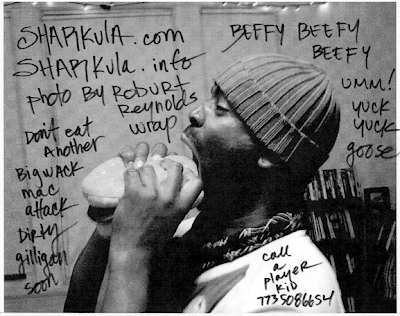 SHAPIKULA.com
SHAPIKula.info
photo By ROBURT
Reynolds
wrap
Don't eat
Another
Bigwack
mac
attack
Dirty
gilligan
soon
BEFFY BEEFY
BEEFY
UMM!
YUCK
YUCK
goose
call
a
playeR
KID
7735086654